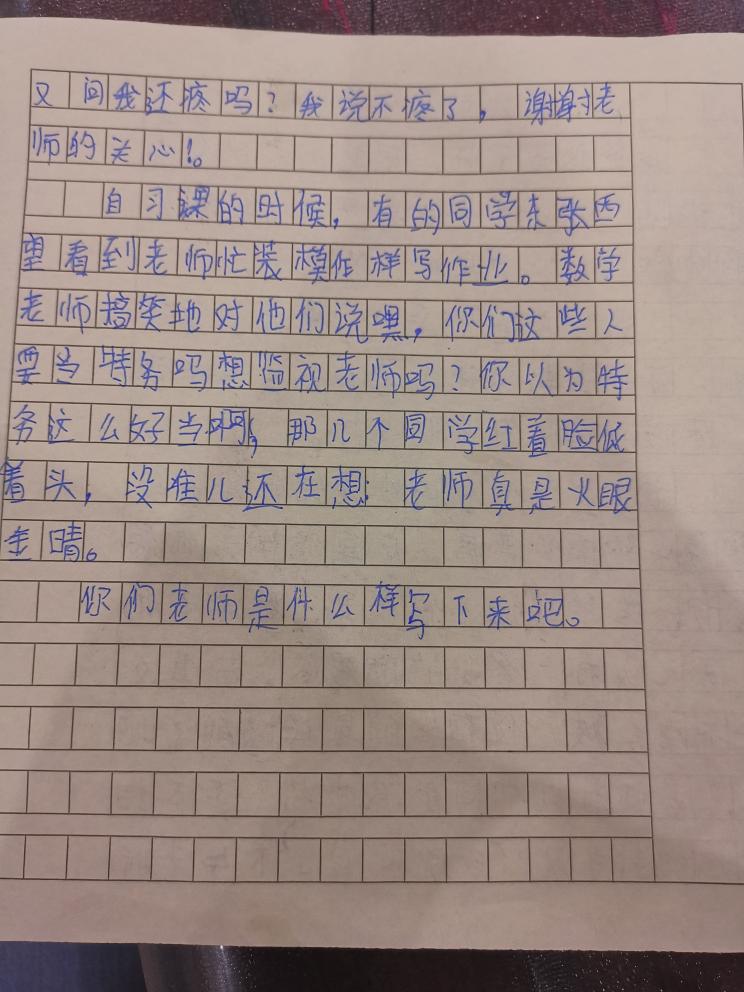 又问我还疼吗?我说不疼了,谢谢老
师的关心!。
自习课的时候,有的同学东张西
望看到老师忙装模作样写作业。数学
老师搞笑地对他们说嘿,你们这些人
要当特务吗想监视老师吗?你以为特
务这么好当啊,那几个同学红着脸低
着头,没准儿还在想:老师真是火眼
金睛。
你们老师是什么样写下来吧。